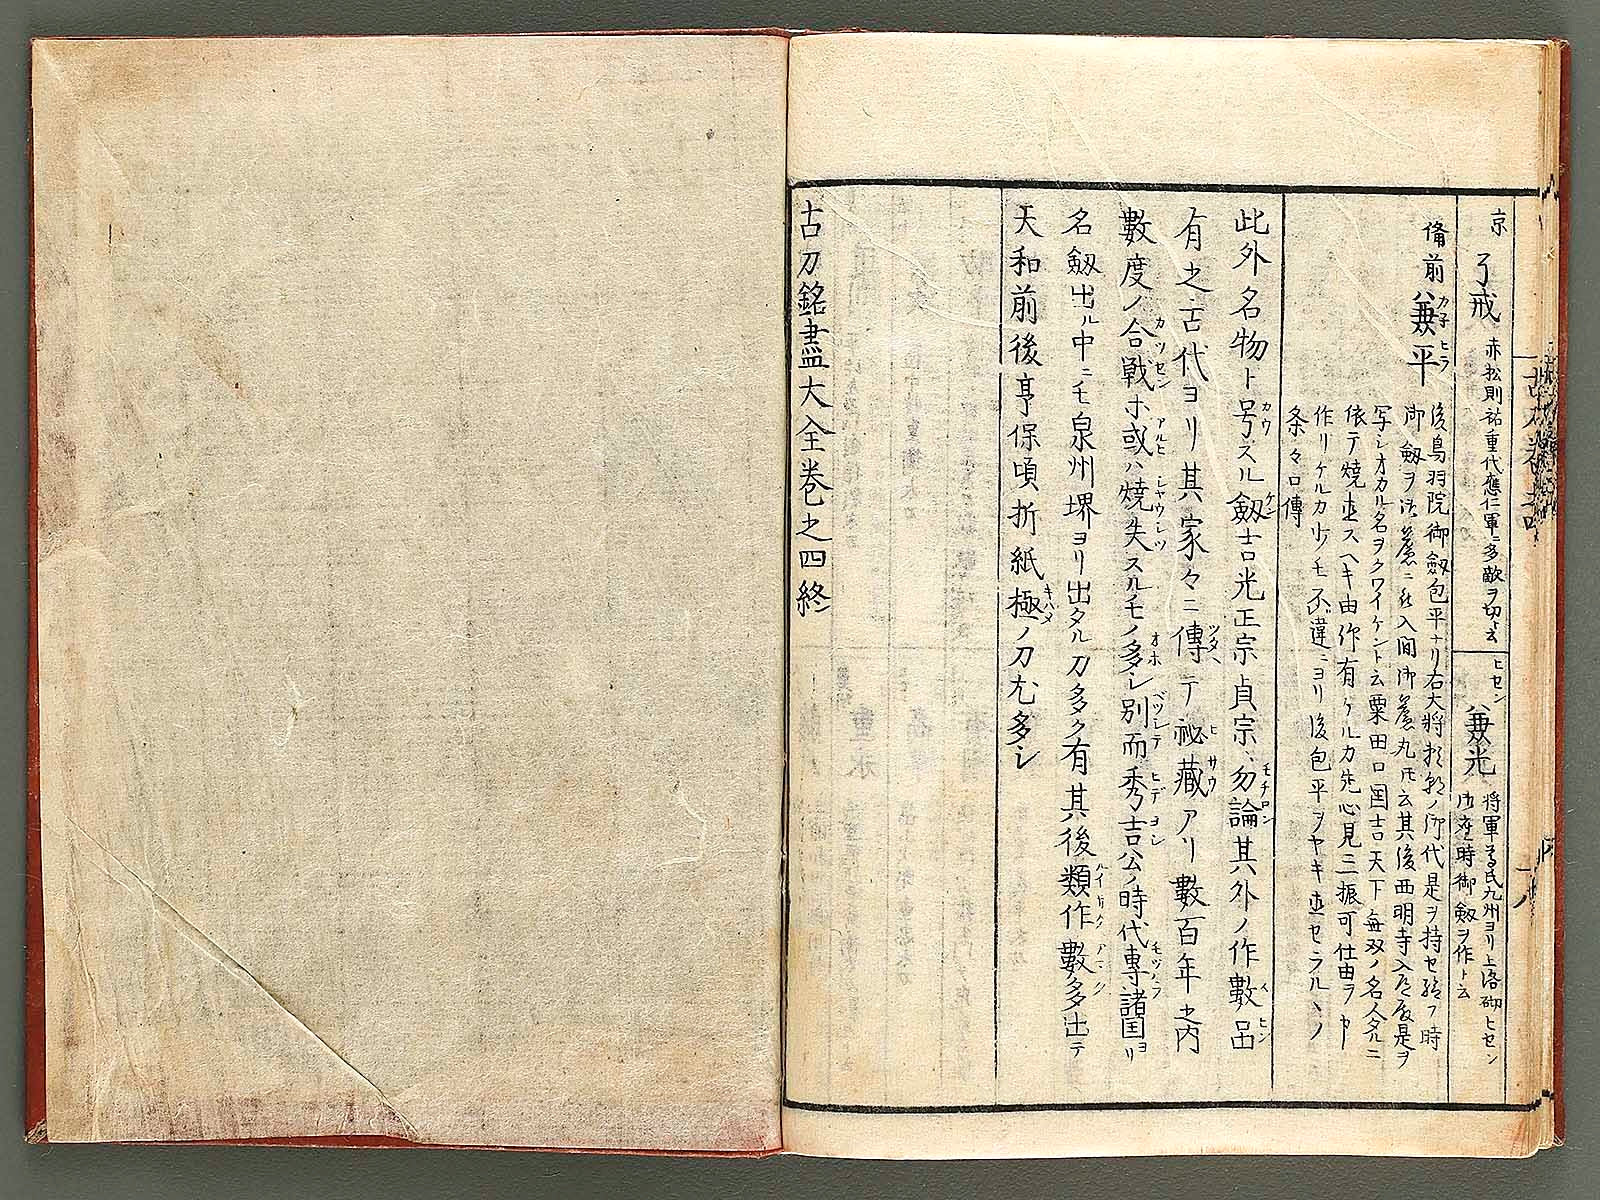 京 了戒 赤松則祐重代應仁軍ニ多敵ヲ切ト云
ヒセン 兼光 将軍尊氏九州ヨリ上洛砌ヒセン
時御釼ヲ作ト云
備前 兼平 カネヒラ
後鳥羽院御釼包平ナリ右大將頼朝ノ御代是ヲ持セ給フ時
御釼ヲ御簾ニ入間御簾丸氏云其後西明寺入道殿是ヲ
写シオカル名ヲクワイケント云粟田口国吉天下毎双ノ名人タルニ
依テ焼直スヘキ由作有ケルカ先心見三振可仕由ヲヤ
作リケルカ少モ不違ニヨリ後包平ヲヤキ直セラルヽノ
条々口傳
此外名物ト号スル釼吉光正宗貞宗ハ勿論其外ノ作數品
有之古代ヨリ其家々ニ傳テ祕藏アリ數百年之内
數度ノ合戦ホ或ハ焼失スルモノ多シ別而秀吉公ノ時代專諸国ヨリ
名釼出ル中ニモ泉州堺ヨリ出タル刀多ク有其後類作數多出テ
天和前後亨保頃折紙極ノ刀尤多シ
古刀銘盡大全巻之四終